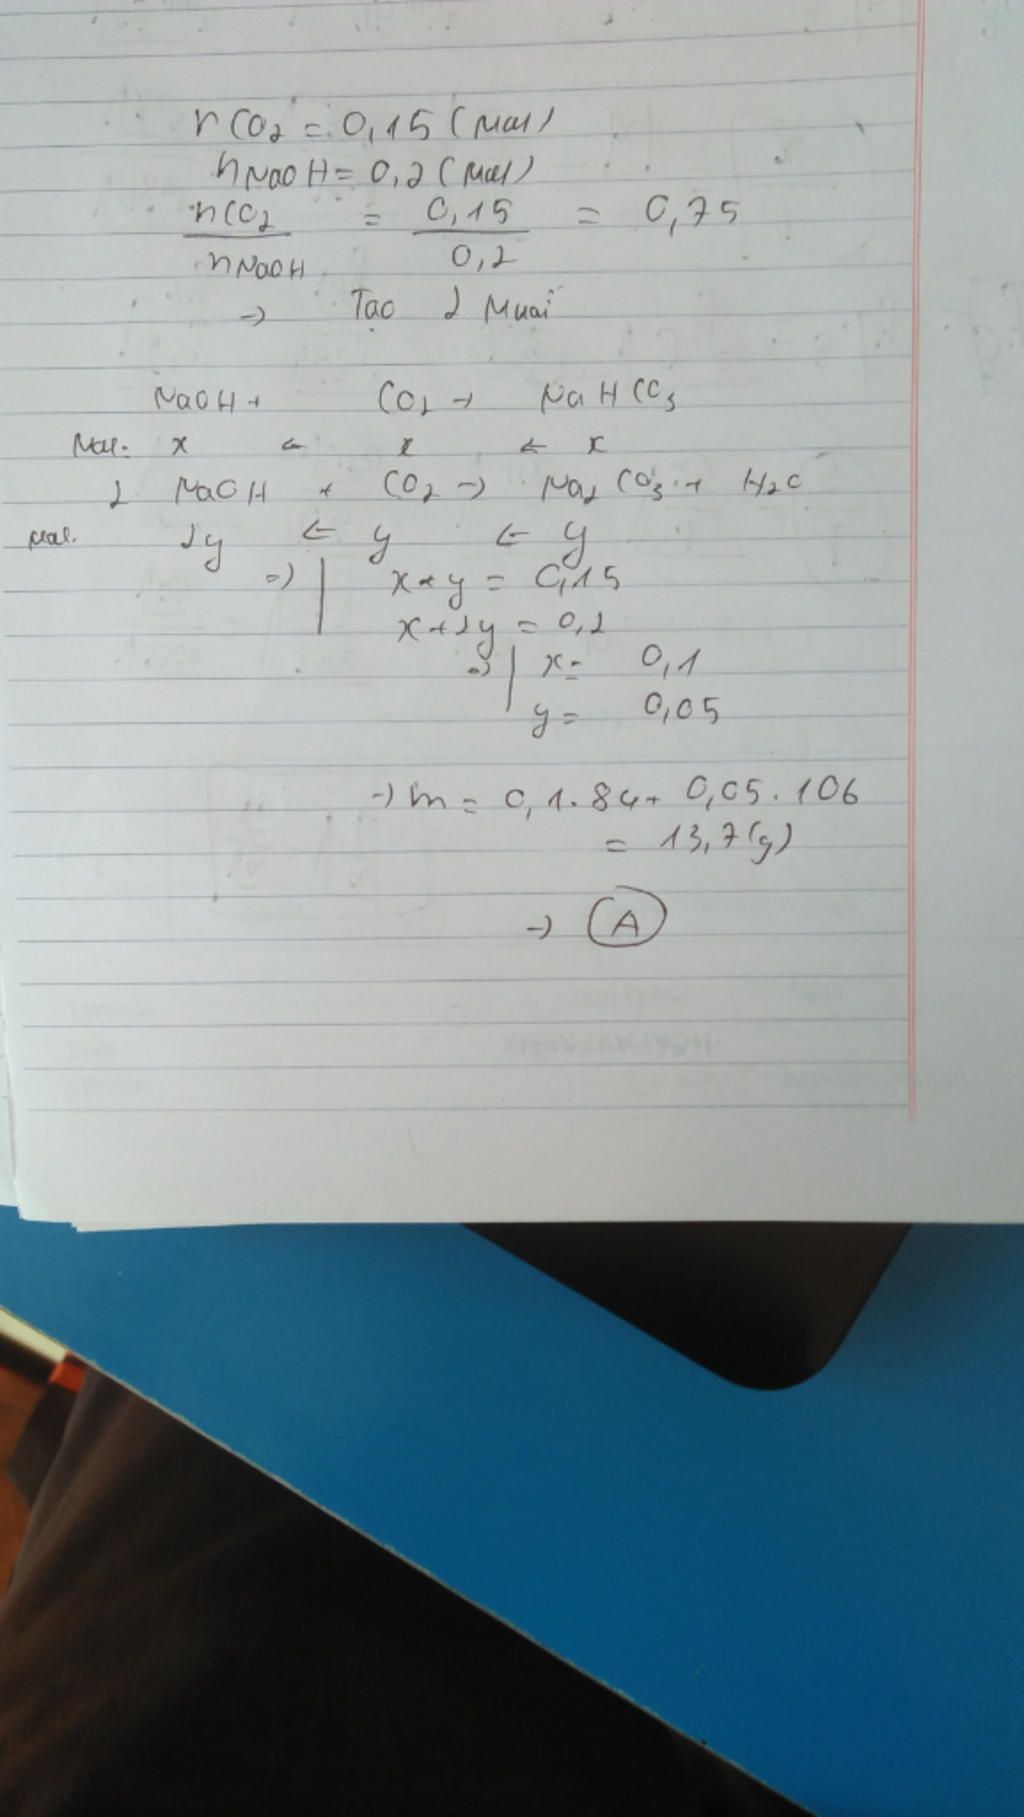 nCO2 = 0,15 (mol)
nNaOH = 0,2 (mol)
nCO2/nNaOH = 0,15/0,2 = 0,75
→ Tạo 2 muối
NaOH + CO2 → NaHCO3
Mol: x ← x ← x
2 NaOH + CO2 → Na2CO3 + H2O
mol. 2y ← y ← y
=> | x+y = 0,15
x+2y = 0,2
=> | x = 0,1
y = 0,05
→ m = 0,1.84 + 0,05.106
= 13,7 (g)
→ A